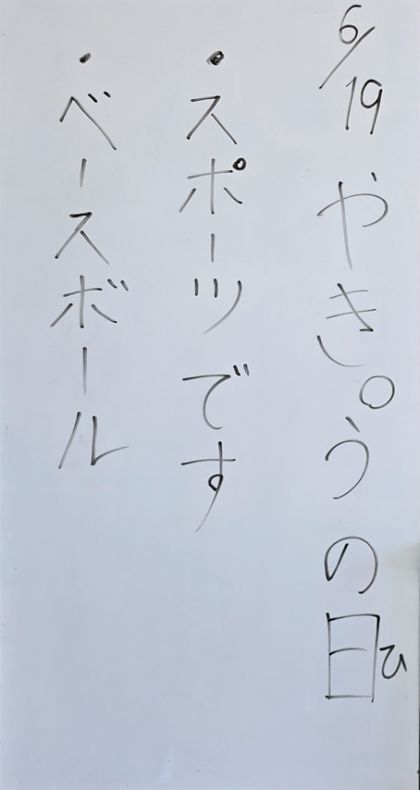 6/19 やき○うの日ひ
・スポーツです
・ベースボール